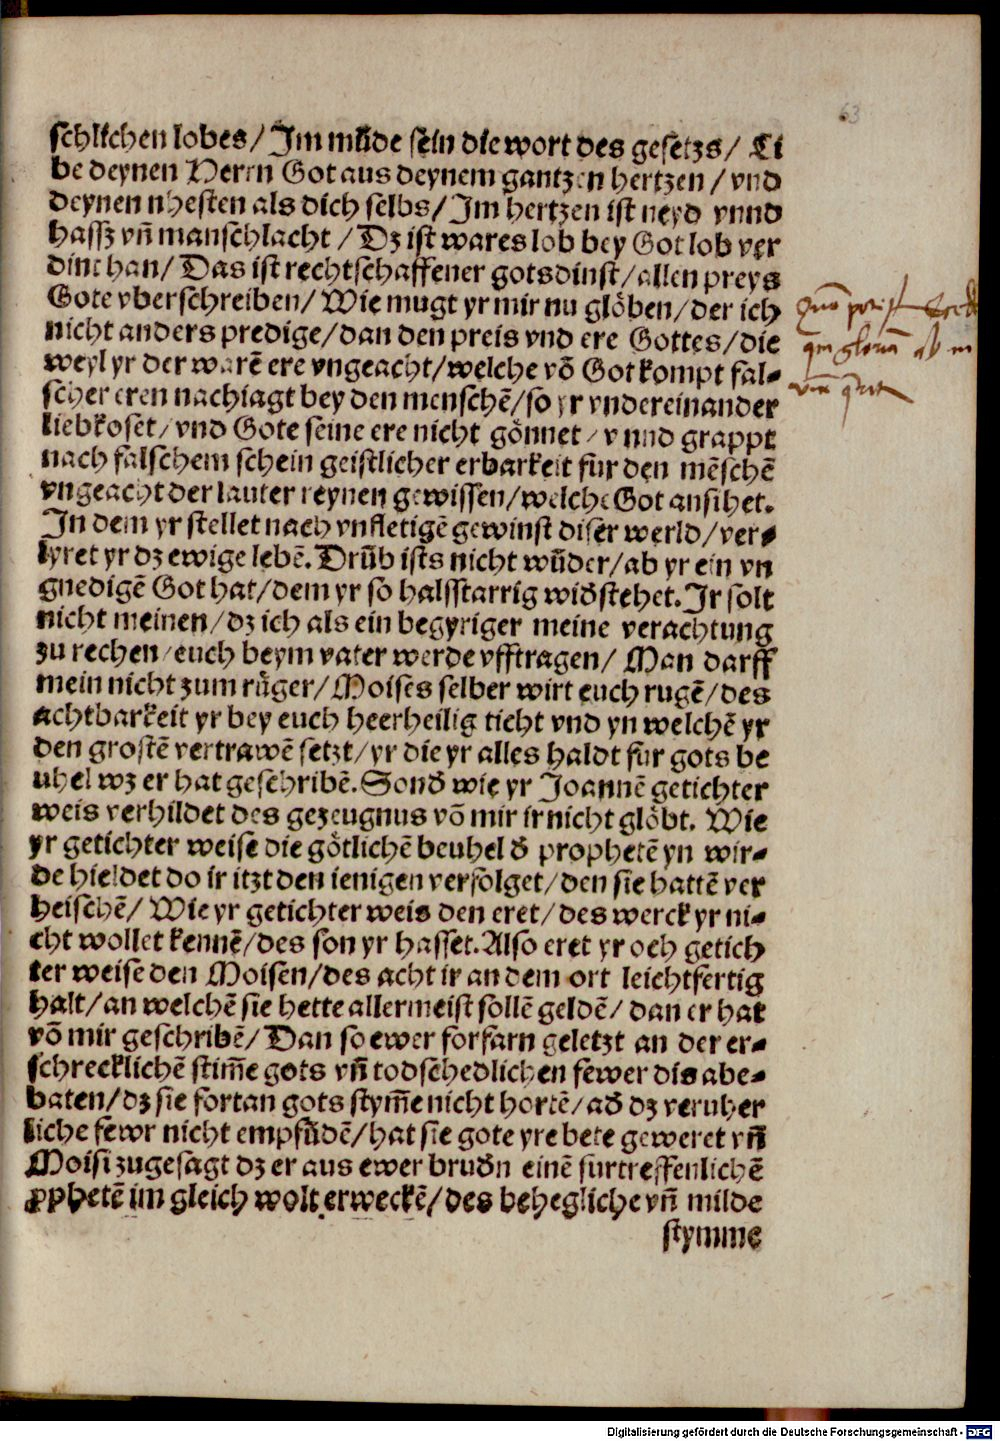 63
schlichen lobes/ Im mūde sein die wort des gesetzs/ Li
be deynen Herrn Got aus deynem gantzen hertzen/ vnd
deynen nhesten als dich selbs/ Im hertzen ist neyd vnnd
hassz vn̄ manschlacht/ Dz ist wares lob bey Got lob ver
dint han/ Das ist rechtschaffener gotsdinst/ allen preys
Gote vberschreiben/ Wie mugt yr mir nu glöben/ der ich
nicht anders predige/ dan den preis vnd ere Gottes/ die
weyl yr der warē ere vngeacht/ welche vō Got kompt fal⸗
scher eren nachiagt bey den menschē/ so yr vndereinander
liebkoset/ vnd Gote seine ere nicht gönnet/ vnnd grappt
nach falschem schein geistlicher erbarkeit fur den mēschē
vngeacht der lauter reynen gewissen/ welche Got ansihet.
In dem yr stellet nach vnfletigē gewinst diser werld/ ver⸗
lyret yr dz ewige lebē. Drūb ists nicht wūder/ ab yr ein vn
gnedigē Got hat/ dem yr so halsstarrig widstehet. Ir solt
nicht meinen/ dz ich als ein begyriger meine verachtung
zu rechen/ euch beym vater werde vfftragen/ Man darff
mein nicht zum rüger/ Moises selber wirt euch rugē/ des
achtbarkeit yr bey euch heerheilig ticht vnd yn welchē yr
den grostē vertrawē setzt/ yr die yr alles haldt fur gots be
uhel wz er hat geschribē. Sond wie yr Joannē getichter
weis verhildet des gezeugnus vō mir ir nicht glöbt. Wie
yr getichter weise die götlichē beuhel d prophetē yn wir⸗
de hieldet do ir itzt den ienigen verfolget/ den sie hattē ver
heischē/ Wie yr getichter weis den eret/ des werck yr ni⸗
cht wollet kennē/ des son yr hasset. Also eret yr och getich
ter weise den Moisen/ des acht ir an dem ort leichtfertig
halt/ an welchē sie hette allermeist sollē geldē/ dan er hat
vō mir geschribē/ Dan so ewer forfarn geletzt an der er⸗
schrecklichē stim̄e gots vn̄ todschedlichen fewer dis abe⸗
baten/ dz sie fortan gots stym̄e nicht hortē/ ad dz veruher
liche fewr nicht empfūdē/ hat sie gote yre bete geweret vn̄
Moisi zugesagt dz er aus ewer brudn einē furtreffenlichē
ꝓphetē im gleich wolt erweckē/ des behegliche vn̄ milde
stymme
Digitalisierung gefördert durch die Deutsche Forschungsgemeinschaft - DFG